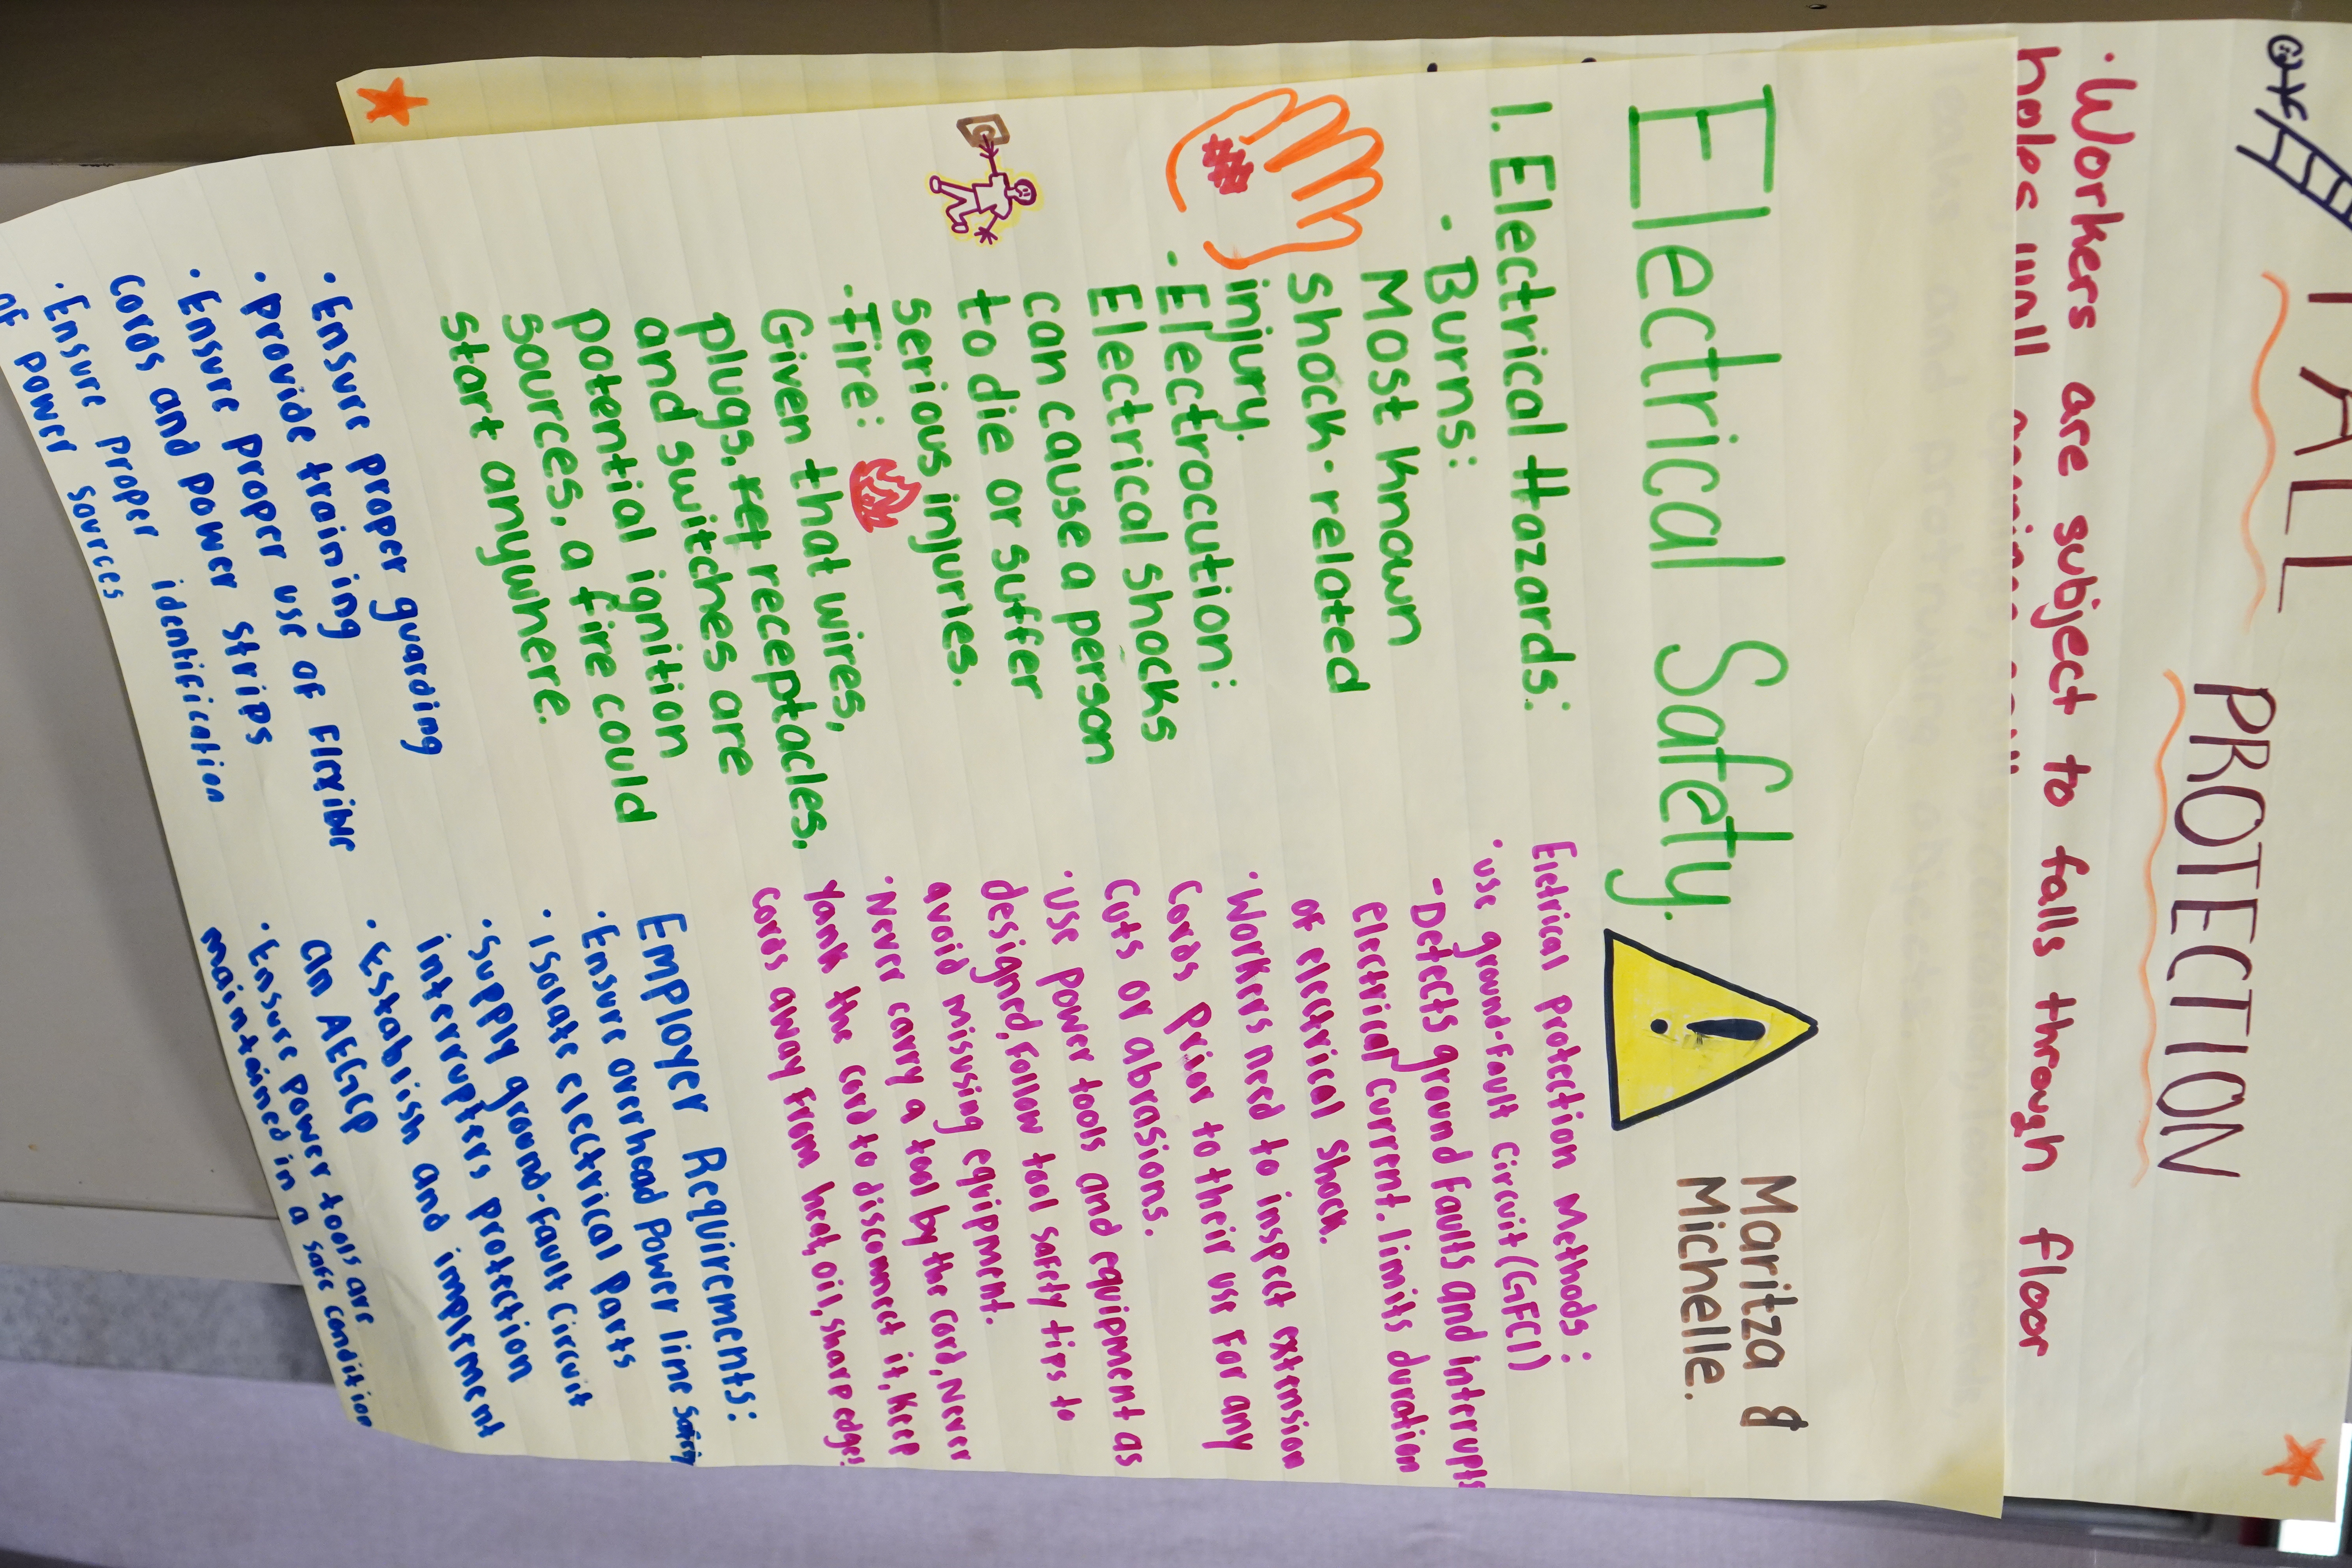 FALL
PROTECTION
· Workers are subject to falls through floor
holes, wall openings, spills, corrosion, loose boards,
leaks and protruding objects.
Electrical Safety.
!
Maritza &
Michelle.
1. Electrical Hazards:
- Burns:
Most known
shock-related
injury.
- Electrocution:
Electrical shocks
can cause a person
to die or suffer
serious injuries.
- Fire:
Given that wires,
plugs, ret receptacles,
and switches are
potential ignition
sources, a fire could
start anywhere.
Eletrical Protection Methods:
· use ground-fault Circuit (GFCI)
- Detects ground faults and interupts
electrical current. limits duration
of electrical shock.
· Workers need to inspect extension
Cords prior to their use for any
Cuts or abrasions.
· Use power tools and equipment as
designed, Follow tool safety tips to
avoid misusing equipment.
· Never carry a tool by the cord, Never
Yank the cord to disconnect it, Keep
cords away from heat, oil, sharp edges!
Employer Requirements:
· Ensure overhead power line safety
· Isolate electrical Parts
· Supply ground-fault Circuit
interrupters protection
· Establish and implement
an AEGCP
· Ensure Power tools are
maintained in a safe condition
· Ensure proper guarding
· Provide training
· Ensure proper use of Flexible
cords and power strips
· Ensure Proper identification
of Power sources